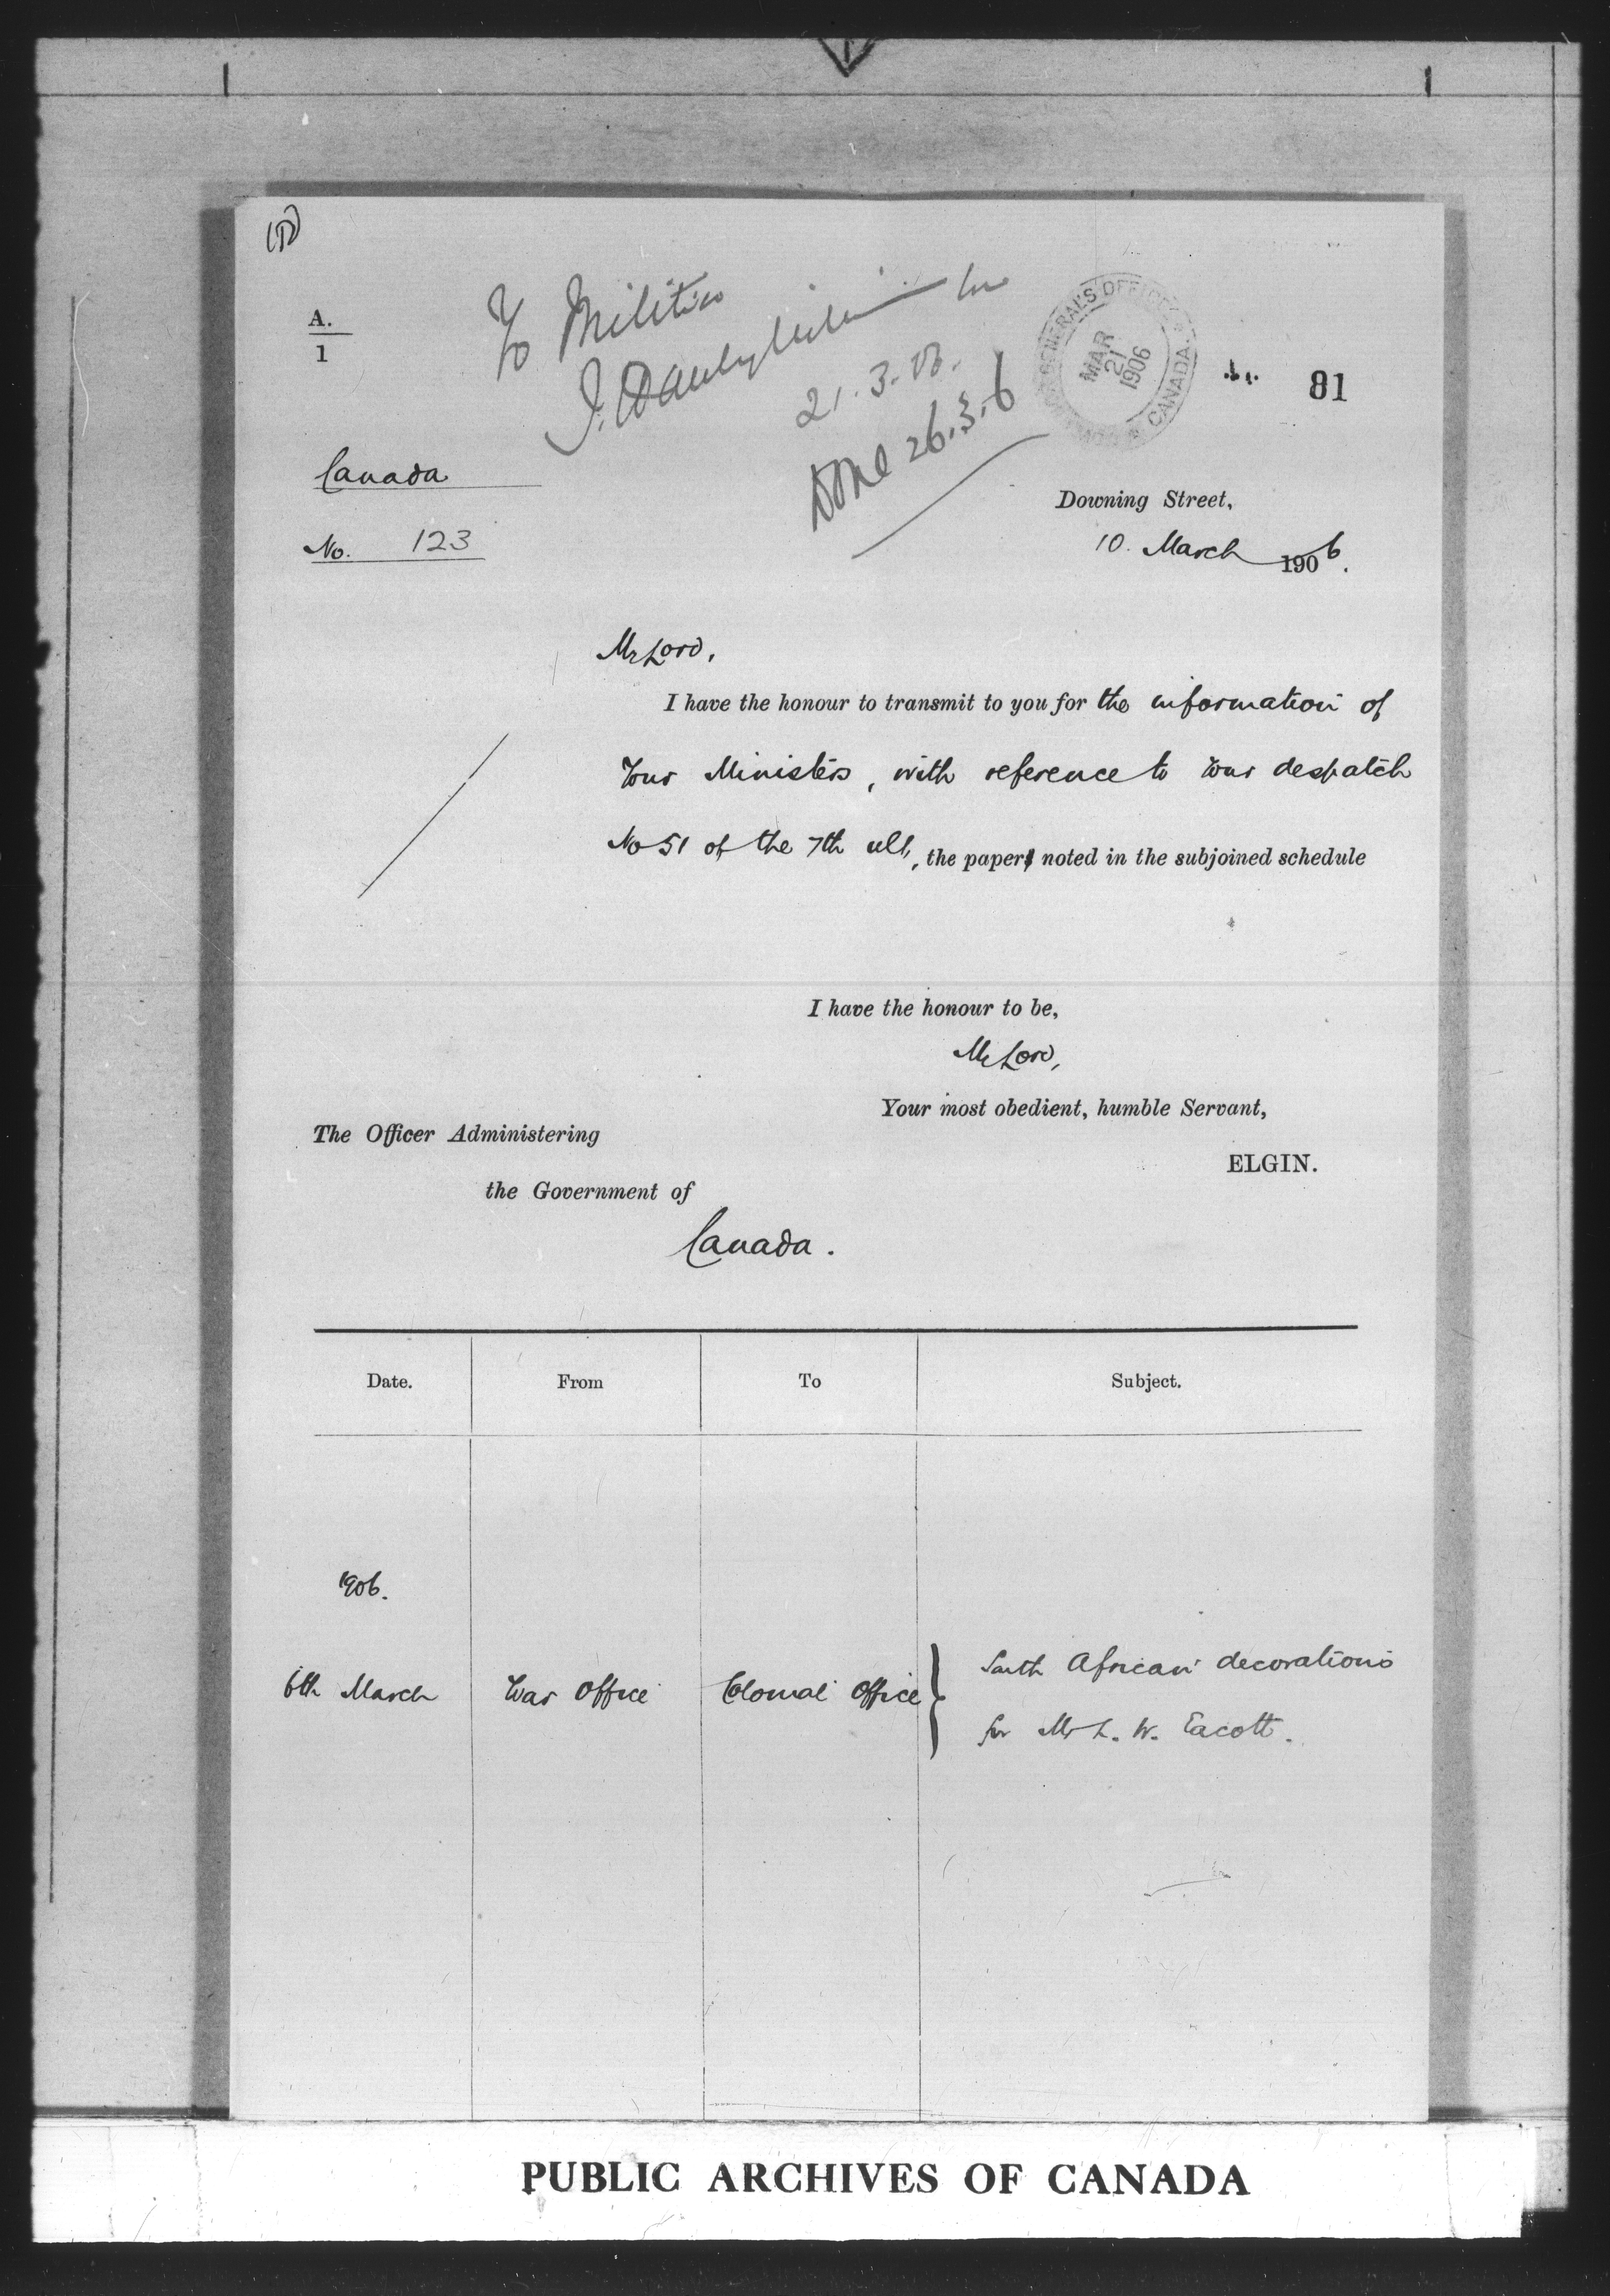 A.
1
To Militia
21.3.06.
Done 26.3.6
GENERAL'S OFFICE
MAR
21
1906
CANADA.
81
Canada
No. 123
Downing Street,
10. March 1906.
My Lord,
I have the honour to transmit to you for the information of
Your Ministers, with reference to Your despatch
No 51 of the 7th ult, the paper noted in the subjoined schedule
I have the honour to be,
My Lord,
Your most obedient, humble Servant,
ELGIN.
The Officer Administering
the Government of
Canada.
Date. From To Subject.
1906.
6th March War Office Colonial Office } South African decorations
for Mr L. W. Eacott.
PUBLIC ARCHIVES OF CANADA